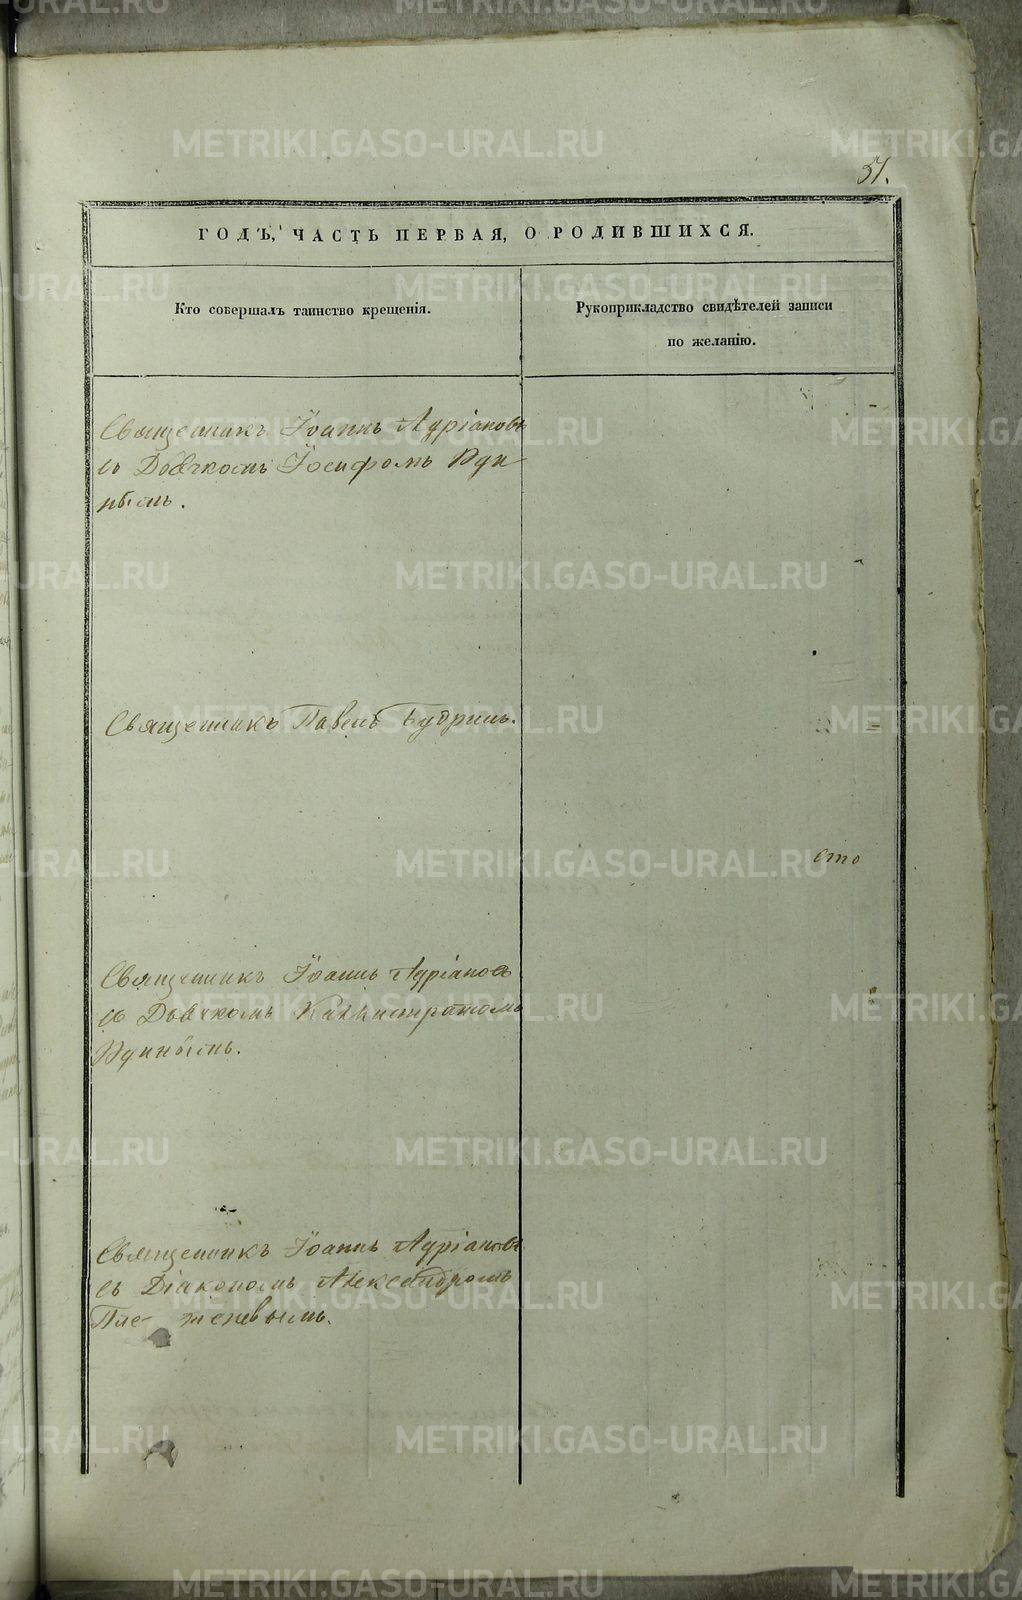 METRIKI.GASO-URAL.RU
51.
ГОДЪ, ЧАСТЬ ПЕРВАЯ, О РОДИВШИХСЯ.
Кто совершалъ таинство крещенія.
Рукоприкладство свидѣтелей записи
по желанію.
Священникъ Іоаннъ Адріановъ
съ Дьячкомъ Іосифомъ Уди
нымъ.
Священникъ Павелъ Кудринъ.
сто
Священникъ Іоаннъ Адріановъ
съ Дьячкомъ Каллистратомъ
Удинымъ.
Священникъ Іоаннъ Адріановъ
съ Діакономъ Александромъ